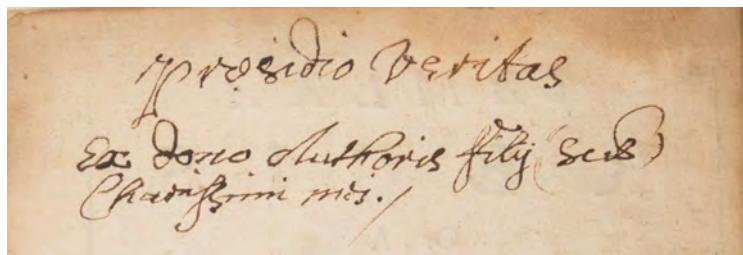 Præsidio Veritas
Ex dono Authoris filij (scis)
Charissimi mei./